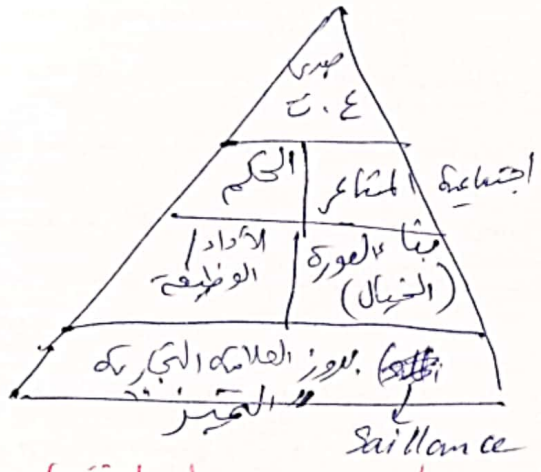 صدى
ع.ت
الحكم
المشاعر
اجتماعية
الأداء/
الوظيفة
الصورة
(الخيال)
بروز العلامة التجارية
"التميز"
Saillance